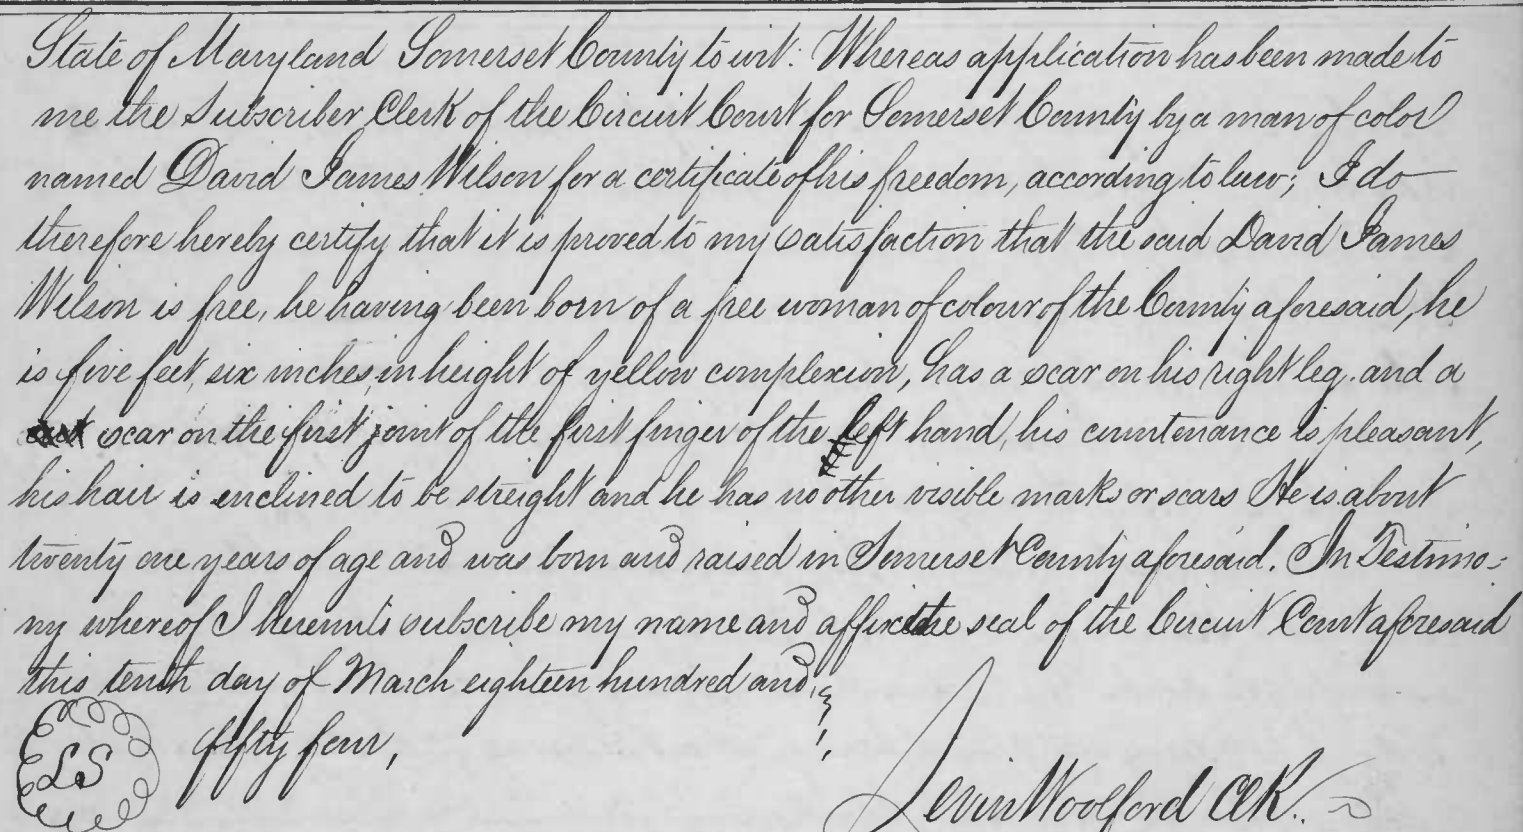 State of Maryland Somerset County to wit: Whereas application has been made to
me the Subscriber Clerk of the Circuit Court for Somerset County by a man of color
named David James Wilson for a certificate of his freedom, according to law; I do
therefore hereby certify that it is proved to my satisfaction that the said David James
Wilson is free, he having been born of a free woman of colour of the County aforesaid, he
is five feet, six inches, in height of yellow complexion, has a scar on his right leg. and a
scar on the first joint of the first finger of the left hand, his countenance is pleasant,
his hair is enclined to be streight and he has no other visible marks or scars He is about
twenty one years of age and was born and raised in Somerset County aforesaid. In Testimo-
ny whereof I hereunto subscribe my name and affix the seal of the Circuit Court aforesaid
this tenth day of March eighteen hundred and
fifty four,
LS
Levin Woolford Clk.